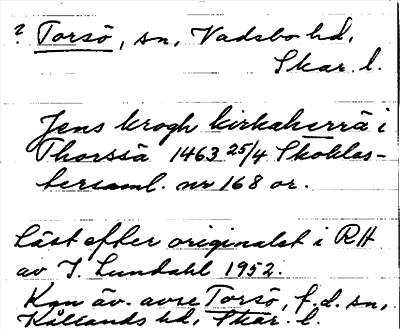 ? Torsö, sn, Vadsbo hd,
Skar. l.
Jens krogh kirkaherrä i
Thorssä 1463 25/4 Skoklas-
tersaml. nr 168 or.
Läst efter originalet i RA
av I. Lundahl 1952.
Kan äv. avse Torsö, f.d. sn,
Kållands hd, Skar. l